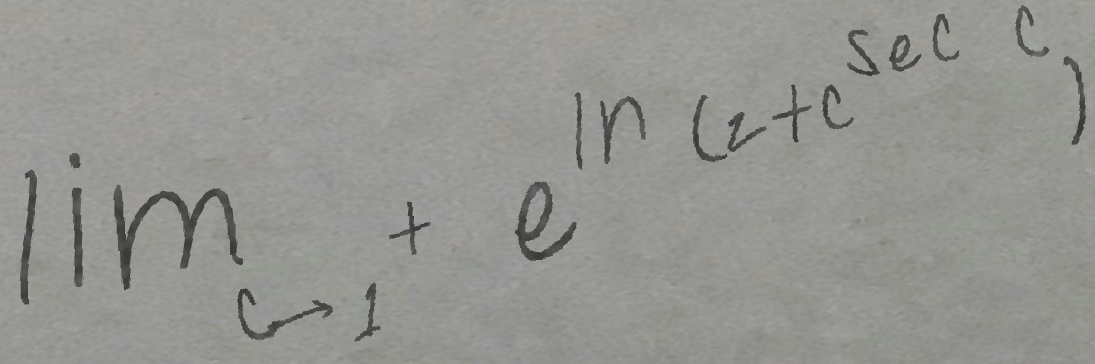 lim_{c→1^+} e^{ln(2+c^{sec c})}